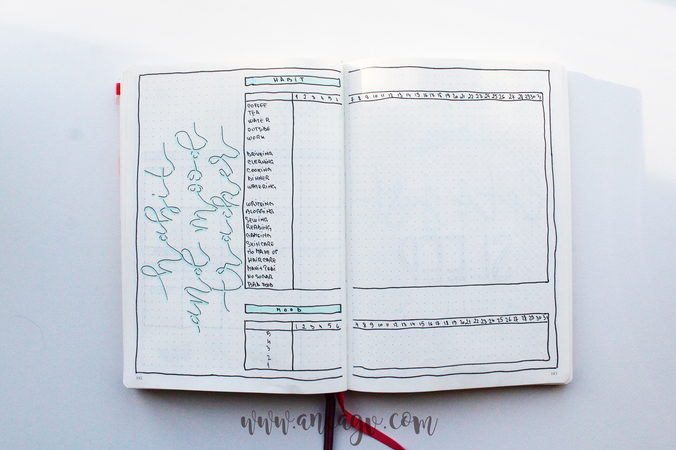 habit
and mood
tracker
HABIT
1 2 3 4 5 6 7 8 9 10 11 12 13 14 15 16 17 18 19 20 21 22 23 24 25 26 27 28 29 30 31
COFFEE
TEA
WATER
OUTSIDE
WORK
DRINKING
CLEANING
COOKING
DINNER
WATERING
WRITING
BLOGGING
SEWING
READING
DANCING
SKINCARE
NO MAKE UP
HAIRCARE
MANI & PEDI
NO SUGAR
BAD FOOD
MOOD
1 2 3 4 5 6 7 8 9 10 11 12 13 14 15 16 17 18 19 20 21 22 23 24 25 26 27 28 29 30 31
5
4
3
2
1
www.aneagv.com